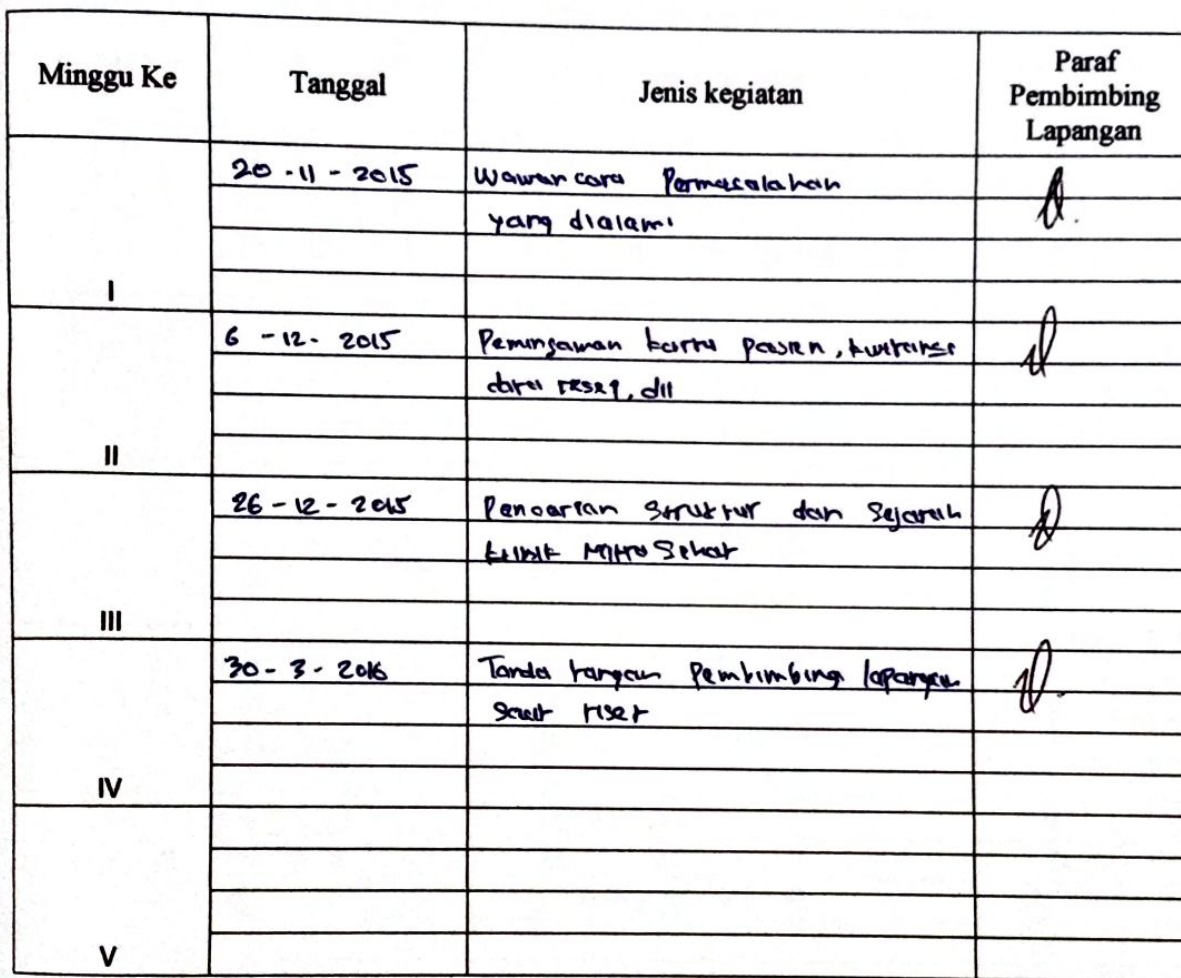 Minggu Ke Tanggal Jenis kegiatan Paraf Pembimbing Lapangan
20 - 11 - 2015 Wawancara Permasalahan
yang dialami
I
6 - 12 - 2015 Peminjaman kartu pasien, kwitansi
data resep, dll
II
26 - 12 - 2015 Pencarian Struktur dan Sejarah
klinik Mitra Sehat
III
30 - 3 - 2016 Tanda tangan Pembimbing lapangan
Surat riset
IV
V